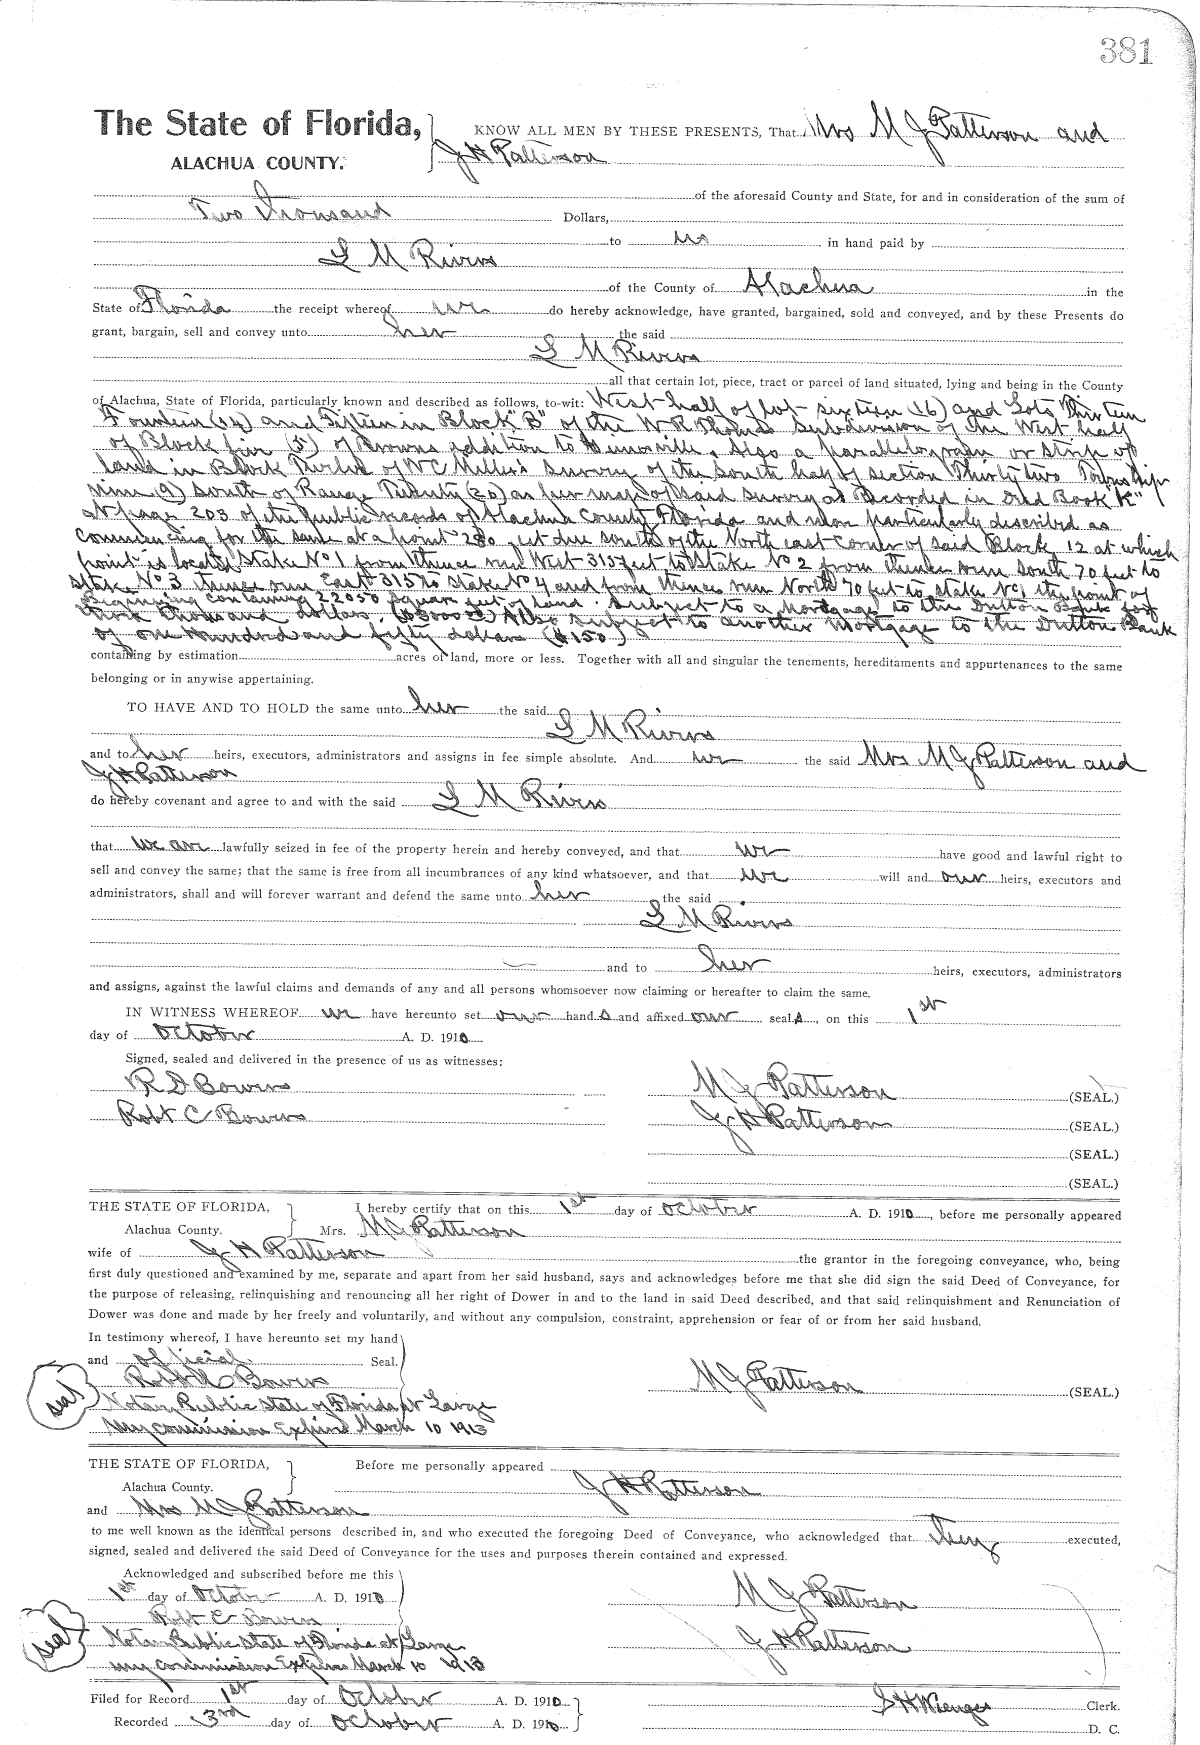 381
The State of Florida, KNOW ALL MEN BY THESE PRESENTS, That Mrs M J Patterson and
ALACHUA COUNTY. J H Patterson
of the aforesaid County and State, for and in consideration of the sum of
Two thousand Dollars,
to us in hand paid by
L M Rivers
of the County of Alachua in the
State of Florida the receipt whereof we do hereby acknowledge, have granted, bargained, sold and conveyed, and by these Presents do
grant, bargain, sell and convey unto her the said
L M Rivers
all that certain lot, piece, tract or parcel of land situated, lying and being in the County
of Alachua, State of Florida, particularly known and described as follows, to-wit: West half of lot sixteen 16) and Lots Thirteen
Fourteen (14) and Fifteen in Block "B" of the W R Thomas Subdivision of the West half
of Block five (5) of Browns addition to Gainesville. Also a parallelogram or strip of
land in Block Twelve of W C Miller's Survey of the South half of section Thirty two Township
nine (9) South of Range Twenty (20) as per map of said survey as Recorded in Deed Book "K"
at page 203 of the public records of Alachua County Florida and more particularly described as
Commencing for the same at a point 280 feet due south of the North east corner of said Block 12 at which
point is located Stake No 1 from thence run West 315 feet to Stake No 2 from thence run South 70 feet to
Stake No 3 thence run East 315 to Stake No 4 and from thence run North 70 feet to stake No 1 the point of
Beginning containing 22050 square feet of land. Subject to a Mortgage to the Dutton Bank for
thousand dollars. Also subject to another Mortgage to the Dutton Bank
of one hundred and fifty dollars ($150)
containing by estimation acres of land, more or less. Together with all and singular the tenements, hereditaments and appurtenances to the same
belonging or in anywise appertaining.
TO HAVE AND TO HOLD the same unto her the said
L M Rivers
and to her heirs, executors, administrators and assigns in fee simple absolute. And we the said Mrs M J Patterson and
J H Patterson
do hereby covenant and agree to and with the said L M Rivers
that we are lawfully seized in fee of the property herein and hereby conveyed, and that we have good and lawful right to
sell and convey the same; that the same is free from all incumbrances of any kind whatsoever, and that we will and our heirs, executors and
administrators, shall and will forever warrant and defend the same unto her the said
L M Rivers
and to her heirs, executors, administrators
and assigns, against the lawful claims and demands of any and all persons whomsoever now claiming or hereafter to claim the same.
IN WITNESS WHEREOF we have hereunto set our hand s and affixed our seal s, on this 1st
day of October A. D. 1910
Signed, sealed and delivered in the presence of us as witnesses:
R D Bowers M J Patterson (SEAL.)
Robt C Bowers J H Patterson (SEAL.)
(SEAL.)
(SEAL.)
THE STATE OF FLORIDA, I hereby certify that on this 1st day of October A. D. 1910, before me personally appeared
Alachua County. Mrs. M J Patterson
wife of J H Patterson the grantor in the foregoing conveyance, who, being
first duly questioned and examined by me, separate and apart from her said husband, says and acknowledges before me that she did sign the said Deed of Conveyance, for
the purpose of releasing, relinquishing and renouncing all her right of Dower in and to the land in said Deed described, and that said relinquishment and Renunciation of
Dower was done and made by her freely and voluntarily, and without any compulsion, constraint, apprehension or fear of or from her said husband.
In testimony whereof, I have hereunto set my hand
and official Seal.
Robt C Bowers M J Patterson (SEAL.)
seal Notary Public State of Florida at Large
My commission Expires March 10 1913
THE STATE OF FLORIDA, Before me personally appeared
Alachua County. J H Patterson
and Mrs M J Patterson
to me well known as the identical persons described in, and who executed the foregoing Deed of Conveyance, who acknowledged that they executed,
signed, sealed and delivered the said Deed of Conveyance for the uses and purposes therein contained and expressed.
Acknowledged and subscribed before me this
1st day of October A. D. 1910 M J Patterson
Robt C Bowers
seal Notary Public State of Florida at Large J H Patterson
my commission Expires March 10 1913
Filed for Record 1st day of October A. D. 1910 S H Wienges Clerk.
Recorded 3rd day of October A. D. 1910 D. C.